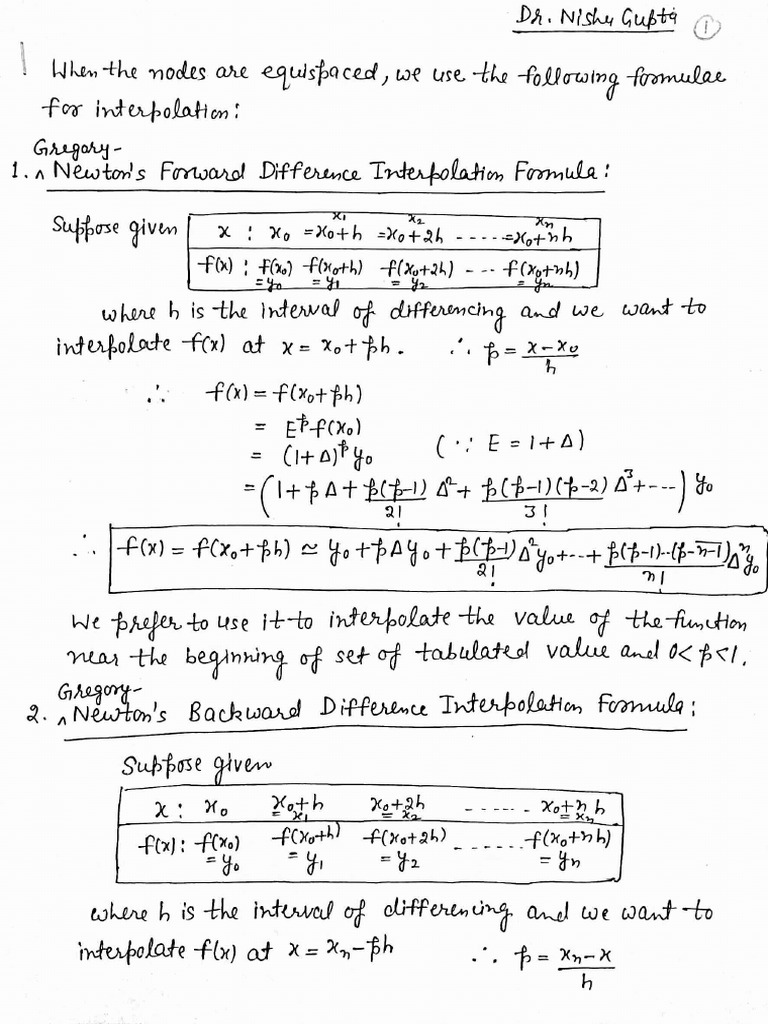 Dr. Nishu Gupta ①
When the nodes are equispaced, we use the following formulae
for interpolation:
Gregory-
1. ^ Newton's Forward Difference Interpolation Formula:
Suppose given
x : x₀ =x₀+h =x₀+2h ------=x₀+nh
x₁ x₂ xₙ
f(x) : f(x₀) f(x₀+h) f(x₀+2h) --- f(x₀+nh)
=y₀ =y₁ =y₂ =yₙ
where h is the interval of differencing and we want to
interpolate f(x) at x = x₀+ph. ∴ p = (x-x₀)/h
∴ f(x) = f(x₀+ph)
= E^p f(x₀)
= (1+Δ)^p y₀ (∵ E = 1+Δ)
= (1+pΔ+p(p-1)/2! Δ²+ p(p-1)(p-2)/3! Δ³+----) y₀
∴ f(x) = f(x₀+ph) ≃ y₀+pΔy₀+p(p-1)/2! Δ²y₀+--+p(p-1)--(p-n̅-̅1̅)/n! Δⁿy₀
We prefer to use it to interpolate the value of the function
near the beginning of set of tabulated value and 0<p<1.
Gregory-
2. ^ Newton's Backward Difference Interpolation Formula:
Suppose given
x : x₀ x₀+h x₀+2h ------ x₀+nh
=x₁ =x₂ =xₙ
f(x) : f(x₀) f(x₀+h) f(x₀+2h) ------ f(x₀+nh)
=y₀ =y₁ =y₂ =yₙ
where h is the interval of differencing and we want to
interpolate f(x) at x = xₙ-ph ∴ p = (xₙ-x)/h